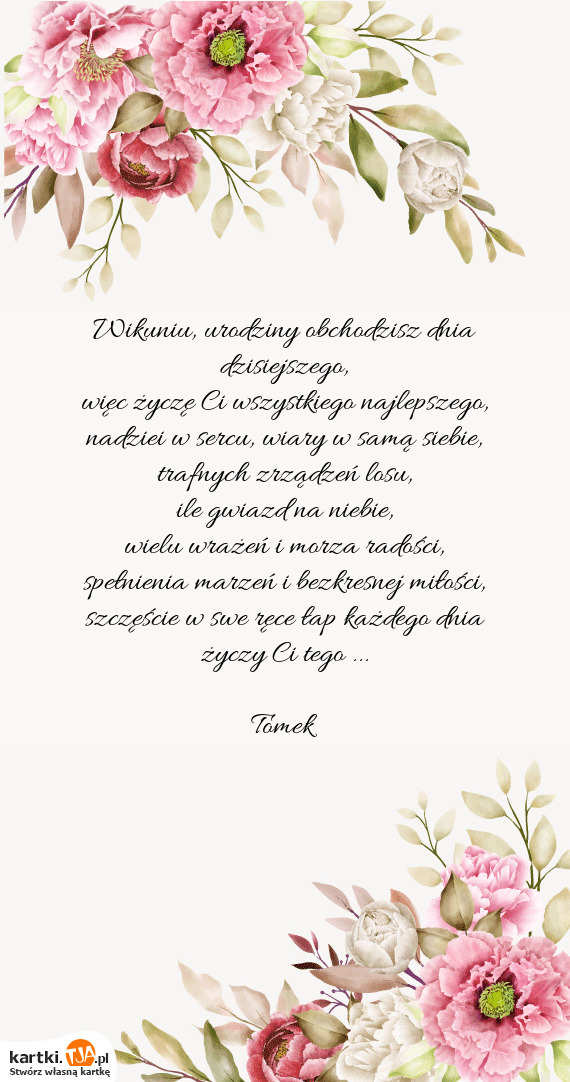 Wikuniu, urodziny obchodzisz dnia
dzisiejszego,
więc życzę Ci wszystkiego najlepszego,
nadziei w sercu, wiary w samą siebie,
trafnych zrządzeń losu,
ile gwiazd na niebie,
wielu wrażeń i morza radości,
spełnienia marzeń i bezkresnej miłości,
szczęście w swe ręce łap każdego dnia
życzy Ci tego ...
Tomek
kartki.TJA.pl
Stwórz własną kartkę